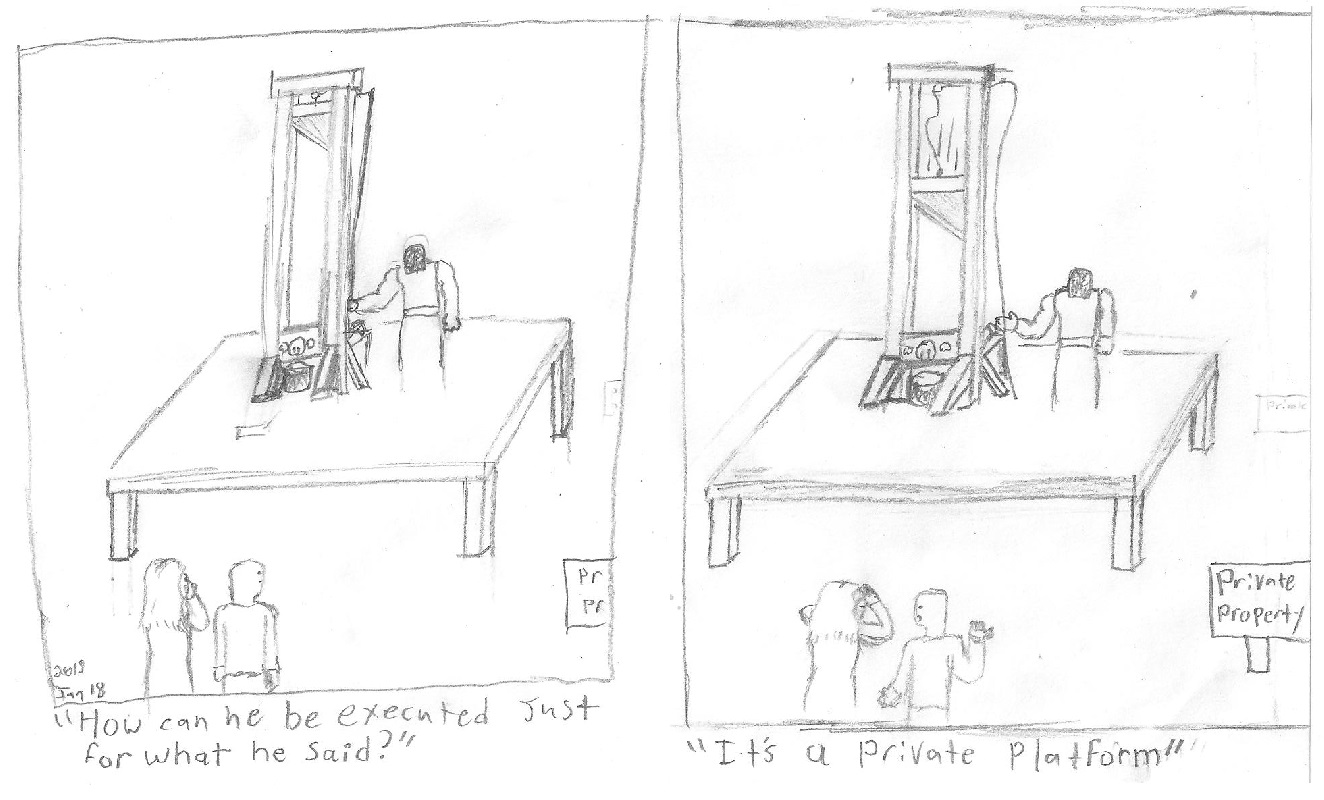 Pr
Pr
2019
Jan 18
"How can he be executed just
for what he said?"
Private
Property
"It's a private platform"